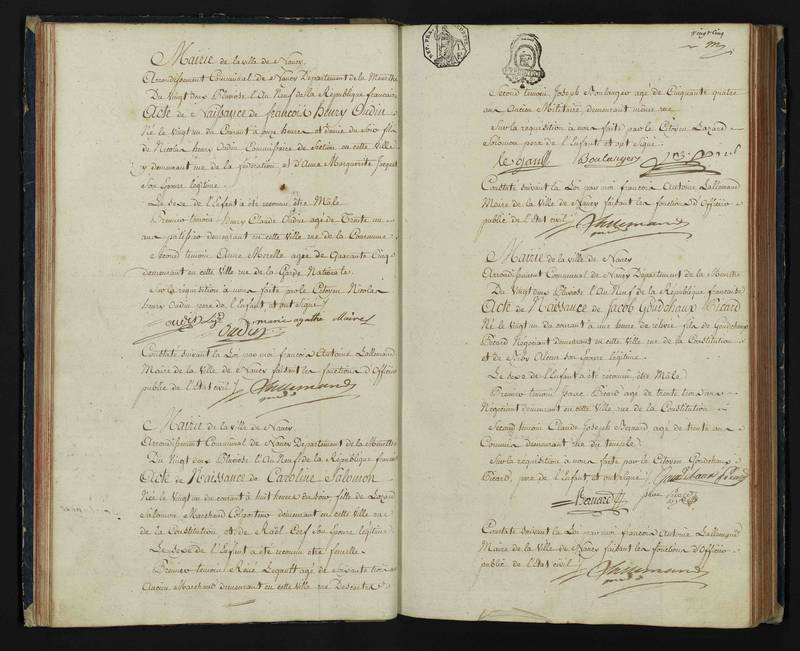 Mairie de la ville de Nancy.
Arrondissement Communal de Nancy Departement de la Meurthe
Du Vingt deux Pluviose l'An Neuf de la République française
Acte de Naissance de françois henry Oudin
Né le Vingt un du Courant à onze heures et demie du soir fils
de Nicolas henry Oudin Commissaire de Section en cette Ville
y demeurant rue de la fédération et d'Anne Marguerite Jacquet
son Epouse légitime.
Le sexe de l'Enfant a été reconnu être Mâle
Premier temoin henry Claude Oudin agé de Trente un
ans demeurant en cette Ville rue de la Commune
Second temoin Anne Morelle agée de Quarante Cinq
demeurant en cette Ville rue de la Garde Nationale
Sur la réquisition à nous faite par le Citoyen Nicolas
henry Oudin pere de l'Enfant et ont signé
oudin oudin marie agathe
Constaté suivant la Loi par moi françois Antoine Lallemand
Maire de la Ville de Nancy faisant les fonctions d'Officier
public de l'état civil Lallemand
Mairie de la ville de Nancy.
Arrondissement Communal de Nancy Departement de la Meurthe
Du Vingt deux Pluviose l'An Neuf de la République française
Acte de Naissance de Caroline Salomon
Née le Vingt un du courant à huit heures du soir, fille de Lazard
Salomon Marchand Colporteur demeurant en cette Ville rue
de la Constitution et de Raël Cerf son Epouse légitime
Le sexe de l'Enfant a été reconnu etre femelle
Premier temoin René Legault agé de soixante trois ans
Ancien Marchand demeurant en cette Ville rue Descartes
Vingt Cinq
Second temoin Joseph Boulanger agé de Cinquante quatre
ans Ancien Militaire demeurant même rue
Sur la requisition à nous faite par le Citoyen Lazard
Salomon pere de l'Enfant et ont signé
legault Boulanger
Constaté suivant la Loi par moi françois Antoine Lallemand
Maire de la Ville de Nancy faisant les fonctions d'Officier
public de l'Etat civil Lallemand
Mairie de la ville de Nancy
Arrondissement Communal de Nancy Departement de la Meurthe
Du Vingt deux Pluviose l'An Neuf de la République française
Acte de Naissance de Jacob Goudchaux Picard
Né le Vingt un du courant à une heure de relevée fils de Goudchaux
Picard Négociant demeurant en cette Ville rue de la Constitution
et de son Epouse légitime.
Le sexe de l'Enfant a été reconnu être Mâle
Premier temoin Isaac Picard agé de trente trois ans
Négociant demeurant en cette Ville rue de la Constitution
Second temoin Claude Joseph Bernard agé de trente ans
Commis demeurant rue du temple
Sur la requisition à nous faite par le Citoyen Goudchaux
Picard, pere de l'Enfant et ont signé Goudchaux Picard
Bernard
Constaté suivant la Loi par moi françois Antoine Lallemand
Maire de la Ville de Nancy faisant les fonctions d'Officier
public de l'Etat civil Lallemand